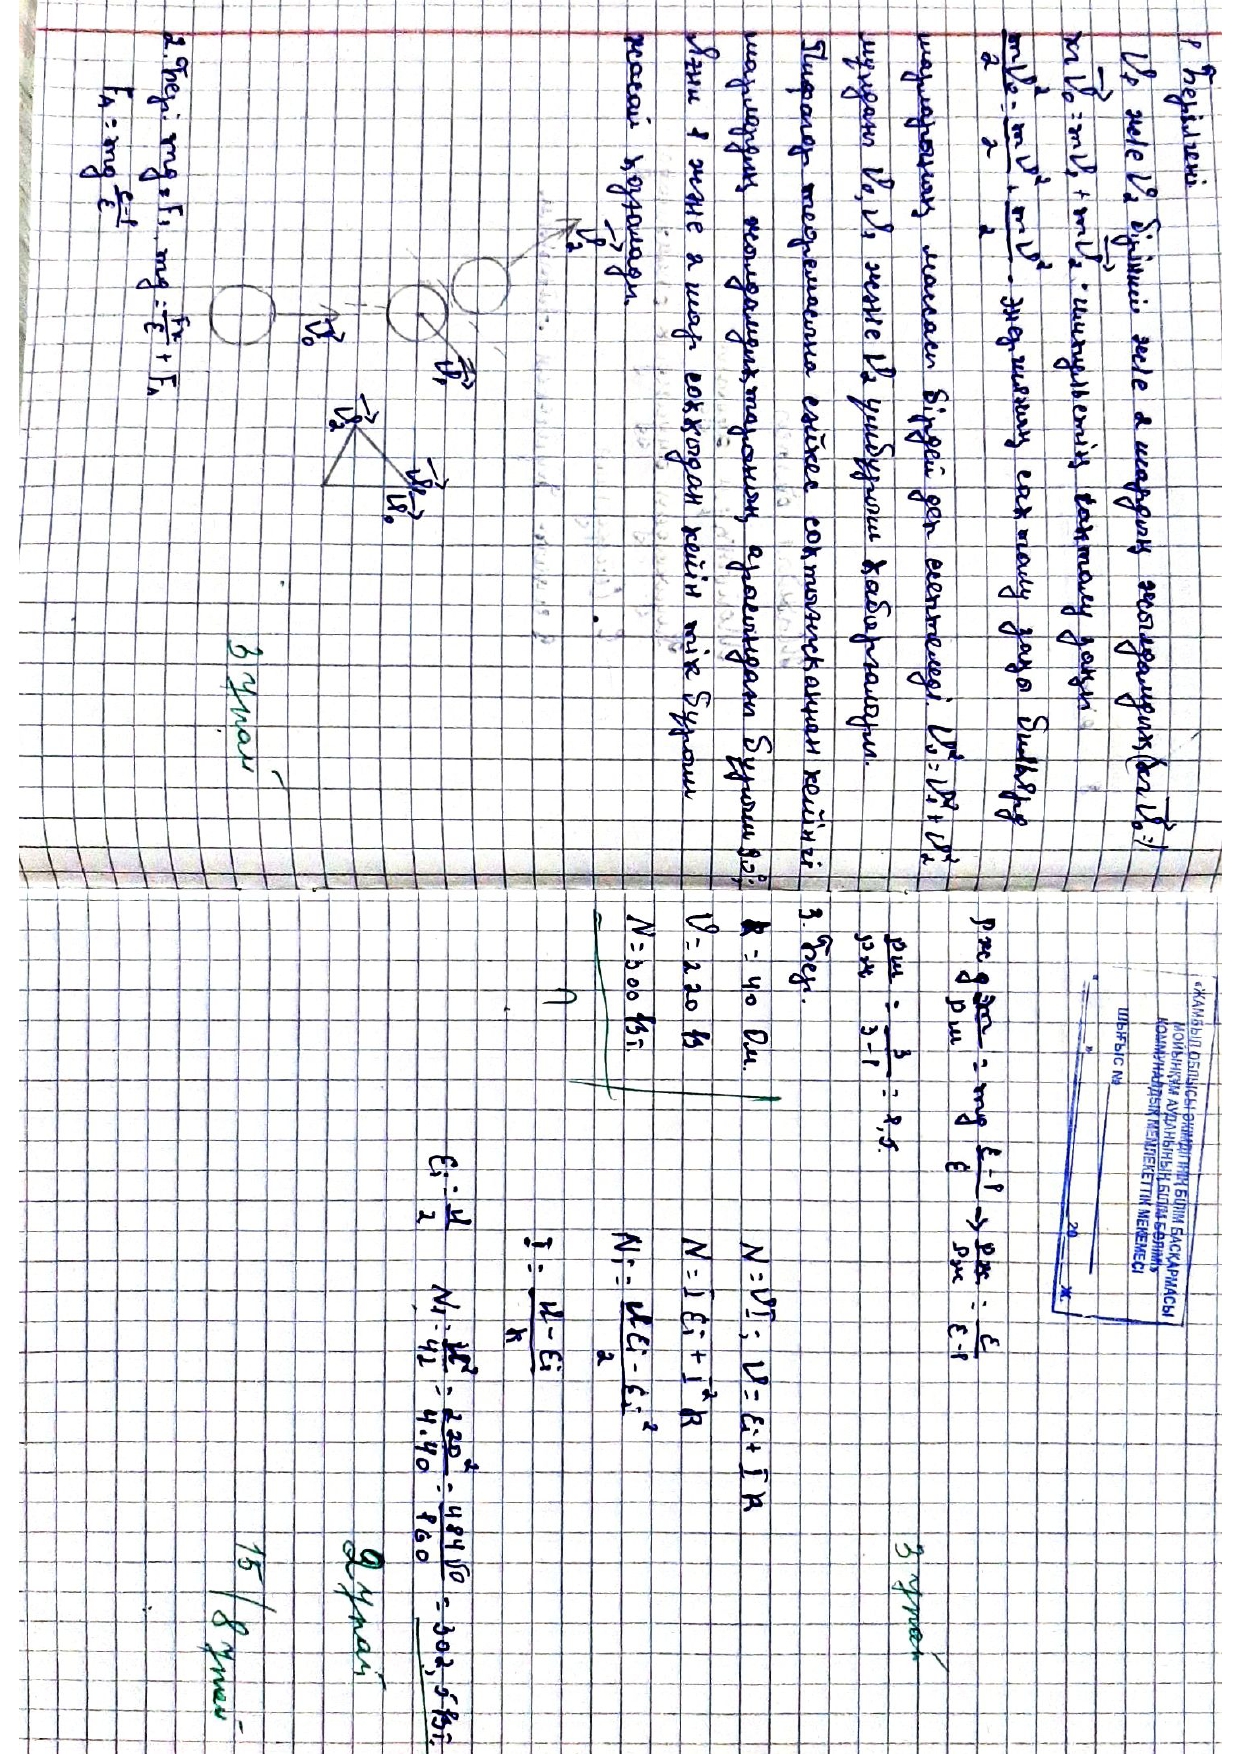 1 Берілгені
V₁ және V₂ бірінші және 2 шардың жылдамдық (mV₀=)
mV₀ = mV₁ + mV₂ : импульстің сақталу заңы
mV₀²/2 = mV²/2 + mV²/2 - энергияның сақталу заңы бильярд
шарларының массасы бірдей деп есептеледі. V₀² = V₁² + V₂²
мұндағы V₀, V₁ және V₂ үшбұрыш қабырғалары.
Пифагор теоремасына сәйкес соқтығысқаннан кейінгі
шарлардың жылдамдықтарының арасындағы бұрыш 90°;
Яғни 1 және 2 шар соққыдан кейін тік бұрыш
жасай қозғалады.
V₂
V₁
V₀
V₂
V₁
V₀
3 ұпай
2. Бер: mg = F₁, mg = Fк/ε + Fₐ
Fₐ = mg ε-1/ε
«ЖАМБЫЛ ОБЛЫСЫ ӘКІМДІГІНІҢ БІЛІМ БАСҚАРМАСЫ
МОЙЫНҚҰМ АУДАНЫНЫҢ БІЛІМ БӨЛІМІ»
КОММУНАЛДЫҚ МЕМЛЕКЕТТІК МЕКЕМЕСІ
ШЫҒЫС №
" " 20 ж.
ρж g m/ρш = mg ε-1/ε → ρж/ρж = ε/ε-1
ρш/ρж = 3/3-1 = 1,5.
3 ұпай
3. Бер.
R = 40 Ом.
U = 220 В
N = 300 Вт.
N = UI; U = Ei + IR
N = IEi + I²R
N₁ = UEi - Ei²/2
I = U - Ei/R
Ei = U/2 N₁ = U²/4R = 220²/4·40 = 48400/160 = 302,5 Вт.
2 ұпай
15/8 ұпай